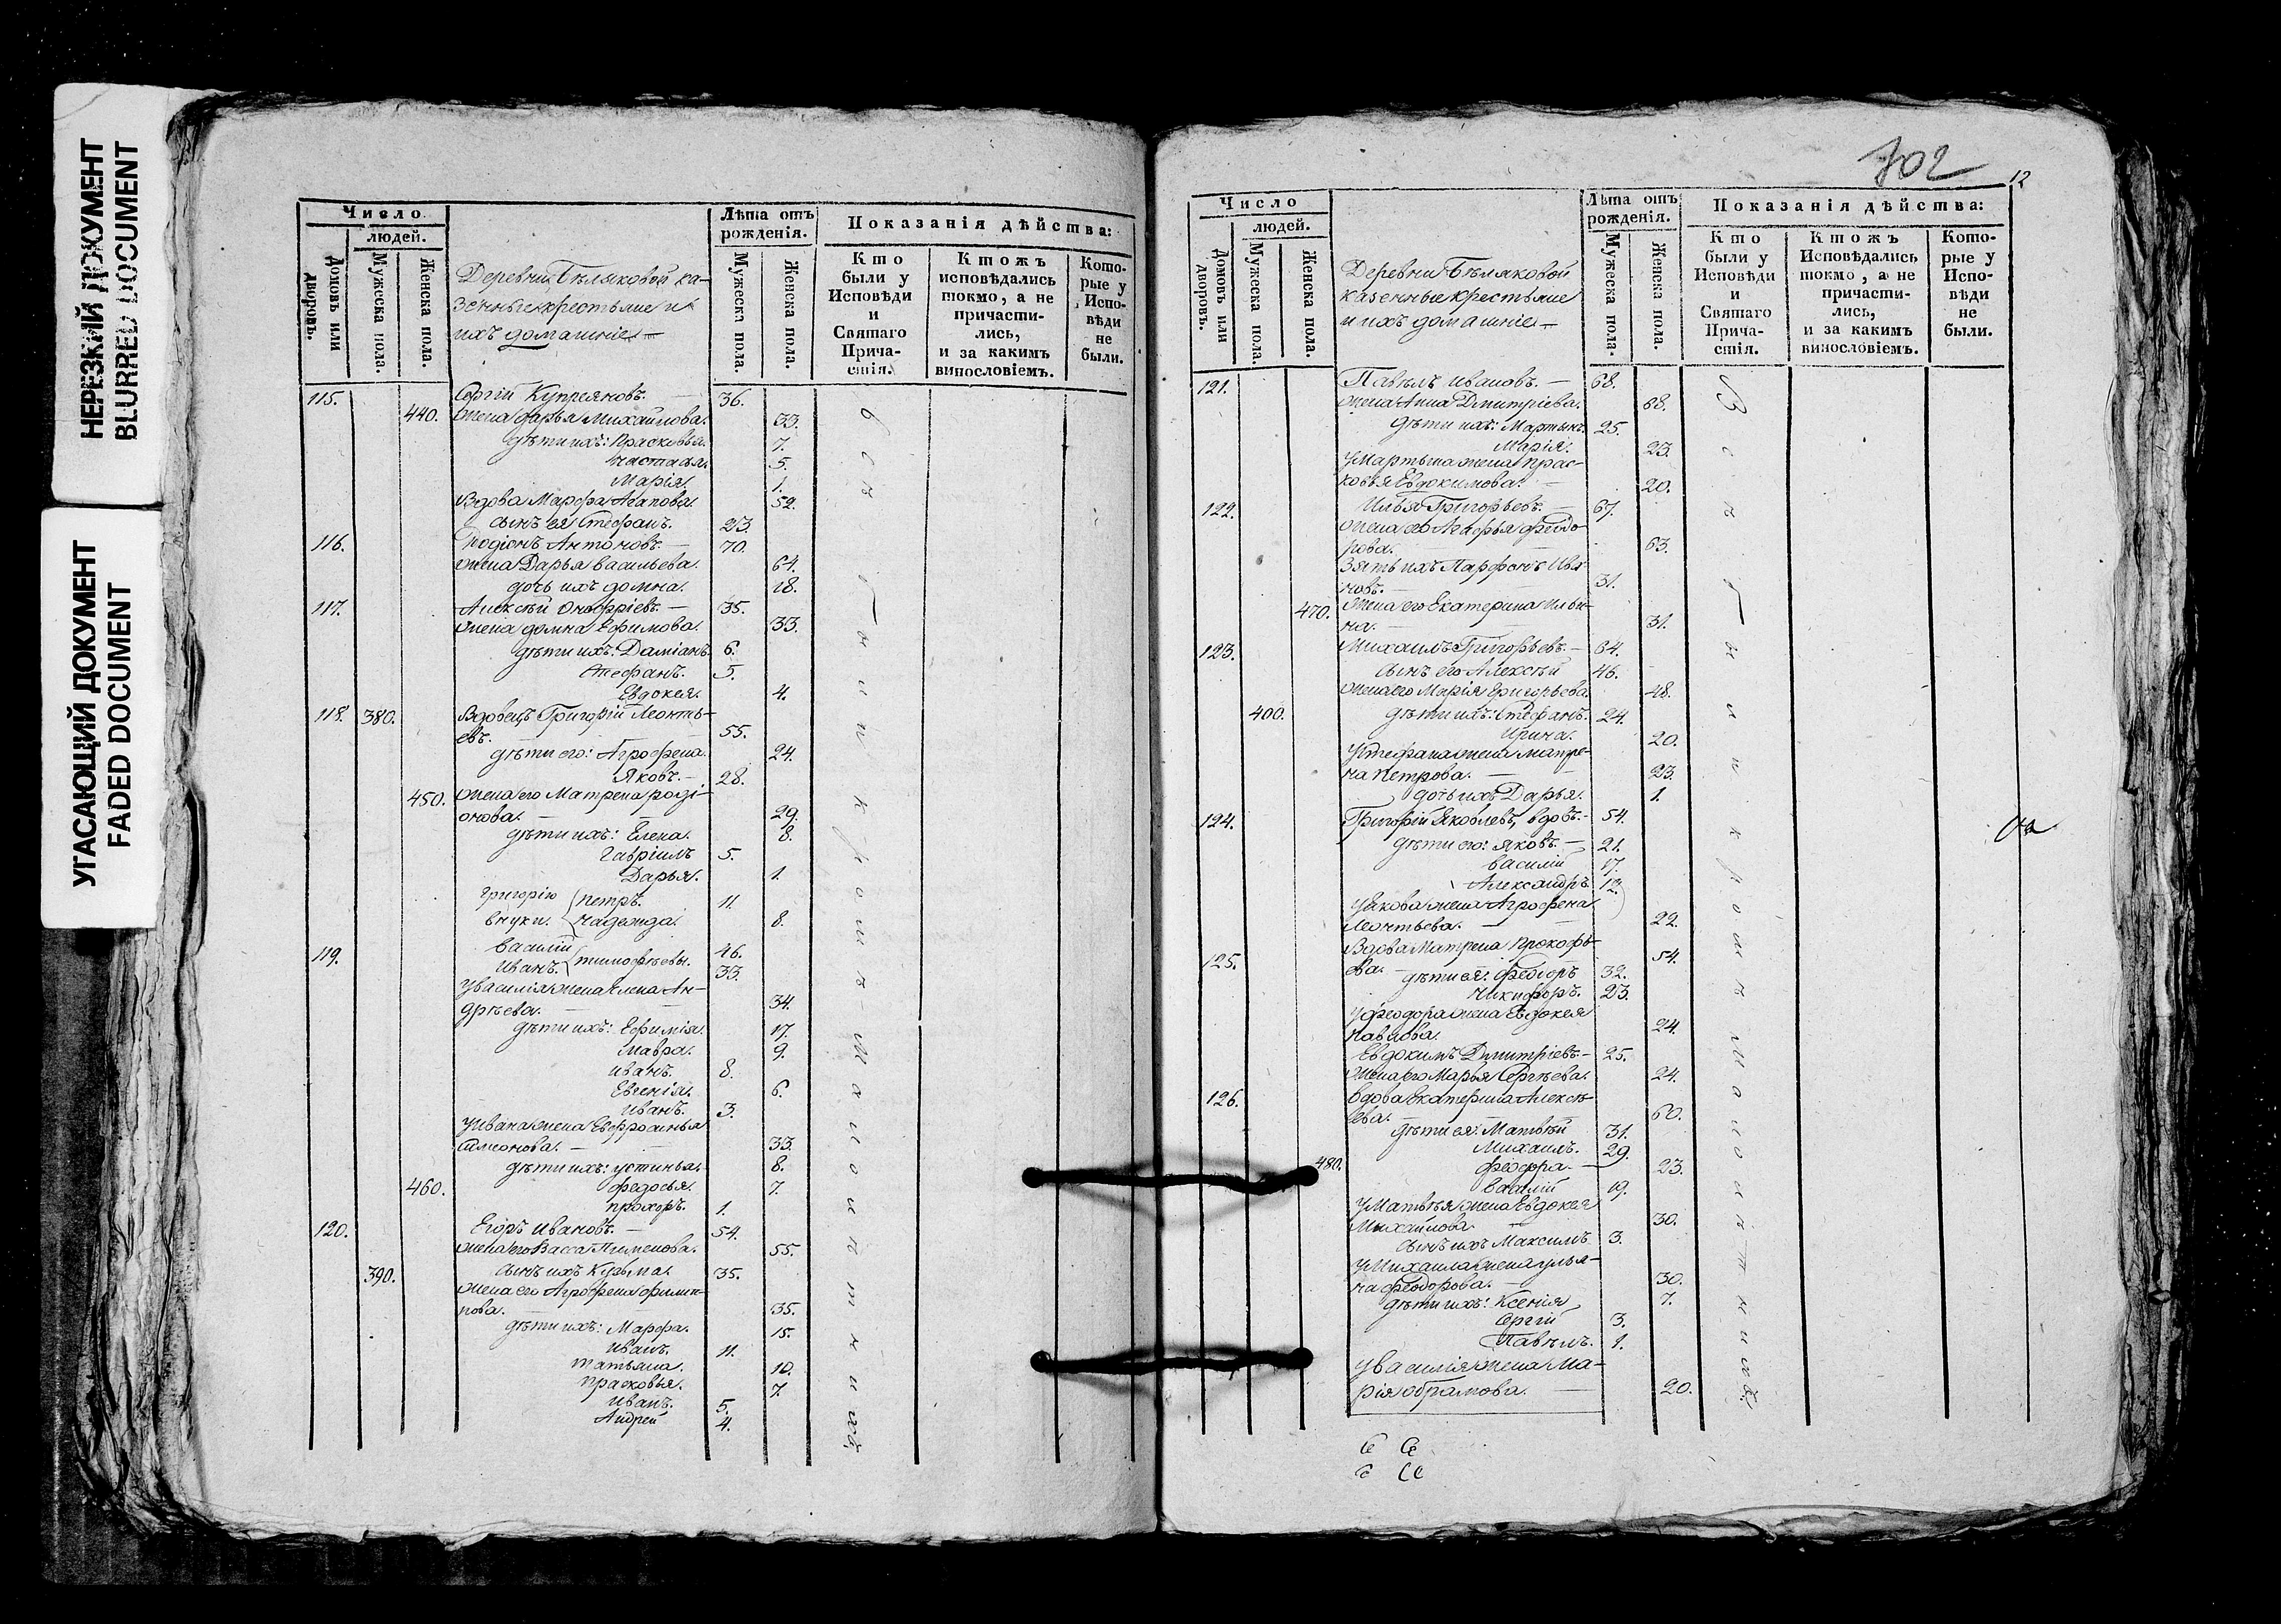 НЕРЕЗКИЙ ДОКУМЕНТ
BLURRED DOCUMENT
УГАСАЮЩИЙ ДОКУМЕНТ
FADED DOCUMENT
Число
людей.
Домовъ или дворовъ.
Мужеска пола.
Женска пола.
Деревни Бѣляковой ка-
зенные крестьяне и
ихъ домашніе
Лѣта отъ рожденія.
Мужеска пола.
Женска пола.
Показанія дѣйства:
Кто были у Исповѣди и Святаго Прича-стія.
Ктожъ исповѣдались токмо, а не причасти-лись, и за какимъ винословіемъ.
Кото-рые у Испо-вѣди не были.
115. Сергій Купреяновъ. 36.
440. жена Дарья Михайлова. 33.
дѣти ихъ: Прасковья. 7.
Настасья. 5.
Марія. 1.
Вдова Марфа Агапова. 52.
сынъ ея Стефанъ. 23.
116. Родіонъ Антоновъ. — 70.
жена Дарья Васильева. 64.
дочь ихъ Домна. 28.
117. Алексѣй Онофріевъ. — 35.
жена Домна Ефимова. 33.
дѣти ихъ: Даміанъ. 6.
Стефанъ. 5.
Евдокея. 4.
118. 380. Вдовецъ Григорій Леонть-
евъ. 55.
дѣти его: Агрофена. 24.
Яковъ. — 28.
450. жена его Матрена Роді-
онова. — 29.
дѣти ихъ: Елена. 8.
Гавріилъ 5.
Дарья. 1.
Григорію Петръ. 11.
внуки. Надежда. 8.
119. Василій 46.
Иванъ. Тимофѣевы. 33.
У Василія жена Елена Ан-
дрѣева. — 34.
дѣти ихъ: Ефимія. 17.
Мавра. 9.
Иванъ. 8.
Евгенія. 6.
Иванъ. 3.
У Ивана жена Евфросинья
Симеонова. — 33.
дѣти ихъ: Устинья. 8.
460. Федосья. 7.
Прохоръ. 1.
120. Егоръ Ивановъ. — 54.
жена его Васса Пименова. 55.
390. сынъ ихъ Кузьма. 35.
жена его Агрофена Филип-
пова. — 35.
дѣти ихъ: Марфа. 15.
Иванъ. 11.
Татьяна. 10.
Прасковья. 7.
Иванъ. 5.
Андрей 4.
702
12
Число
людей.
Домовъ или дворовъ.
Мужеска пола.
Женска пола.
Деревни Бѣляковой
казенные крестьяне
и ихъ домашніе —
Лѣта отъ рожденія.
Мужеска пола.
Женска пола.
Показанія дѣйства:
Кто были у Исповѣди и Святаго Прича-стія.
Ктожъ Исповѣдались токмо, а не причасти-лись, и за какимъ винословіемъ.
Кото-рые у Испо-вѣди не были.
121. Павелъ Ивановъ. — 68.
жена Анна Дмитріева. 68.
дѣти ихъ: Мартынъ. 25.
Марія. 23.
У Мартына жена Прас-
ковья Евдокимова. — 20.
122. Илья Григорьевъ. — 67.
жена его Агафья Феодо-
рова. 63.
Зять ихъ Парфенъ Ива-
новъ. — 31.
470. жена его Екатерина Ильи-
на. — 31.
123. Михаилъ Григорьевъ. — 64.
сынъ его Алексѣй 46.
жена его Марія Григорьева. 48.
400. дѣти ихъ: Стефанъ. 24.
Ирина. 20.
У Стефана жена Матре-
на Петрова. — 23.
дочь ихъ Дарья. 1.
124. Григорій Яковлевъ, вдовъ. — 54.
дѣти его: Яковъ. — 21.
Василій 17.
Александръ. 12.
У Якова жена Агрофена
Леонтьева. — 22.
125. Вдова Матрена Прокофь-
ева. — 54.
дѣти ея: Феодоръ 32.
Никифоръ. 23.
У Феодора жена Евдокея
Павлова. 24.
Евдокимъ Димитріевъ. — 25.
жена его Марья Сергѣева. 24.
126. Вдова Екатерина Алексѣ-
ева. — 60.
дѣти ея: Матвѣй 31.
Михаилъ. 29.
480. Феодора. — 23.
Василій 19.
У Матвѣя жена Евдокея
Михайлова. 30.
сынъ ихъ Максимъ 3.
У Михаила жена Улья-
на Феодорова. — 30.
дѣти ихъ: Ксенія 7.
Сергій 3.
Павелъ. 1.
У Василія жена Ма-
рія Абрамова. — 20.